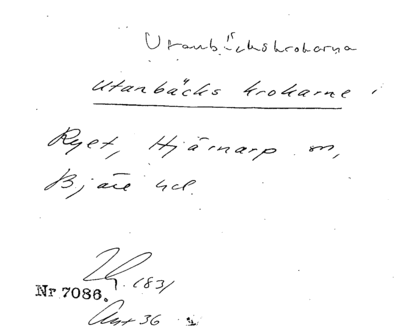 Utanbäckskrokarna
Utanbäcks krokarne
Ryet, Hjärnarp sn,
Bjäre hd.
1831
Nr 7086.
36